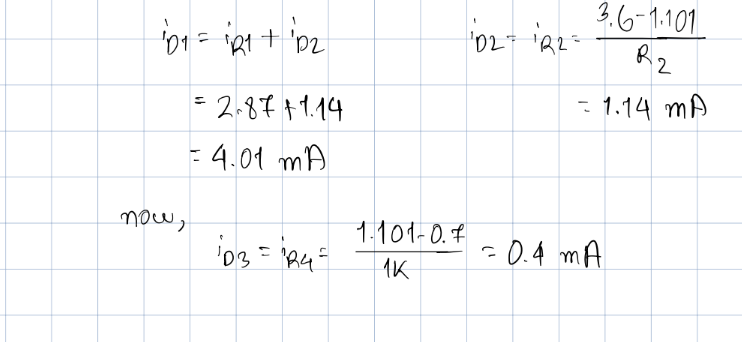 iD1 = iR1 + iD2
= 2.87 + 1.14
= 4.01 mA
iD2 = iR2 = (3.6-1.101)/R2
= 1.14 mA
now,
iD3 = iR4 = (1.101-0.7)/1K = 0.4 mA